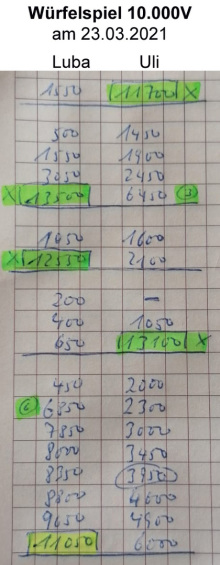 Würfelspiel 10.000V
am 23.03.2021
Luba Uli
1550 11700 X
500 1450
1550 1900
3050 2450
X 13500 6450
1050 1600
X 12550 2100
200 –
400 1050
650 13100 X
450 2000
6 6850 2300
7850 3000
8000 3450
8350 3950
8800 4600
9050 4900
11050 6000